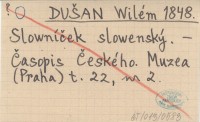 O DUŠAN Wilém 1848.
Slowníček slowenský. –
Časopis Českého. Muzea
(Praha) t. 22, nr 2.